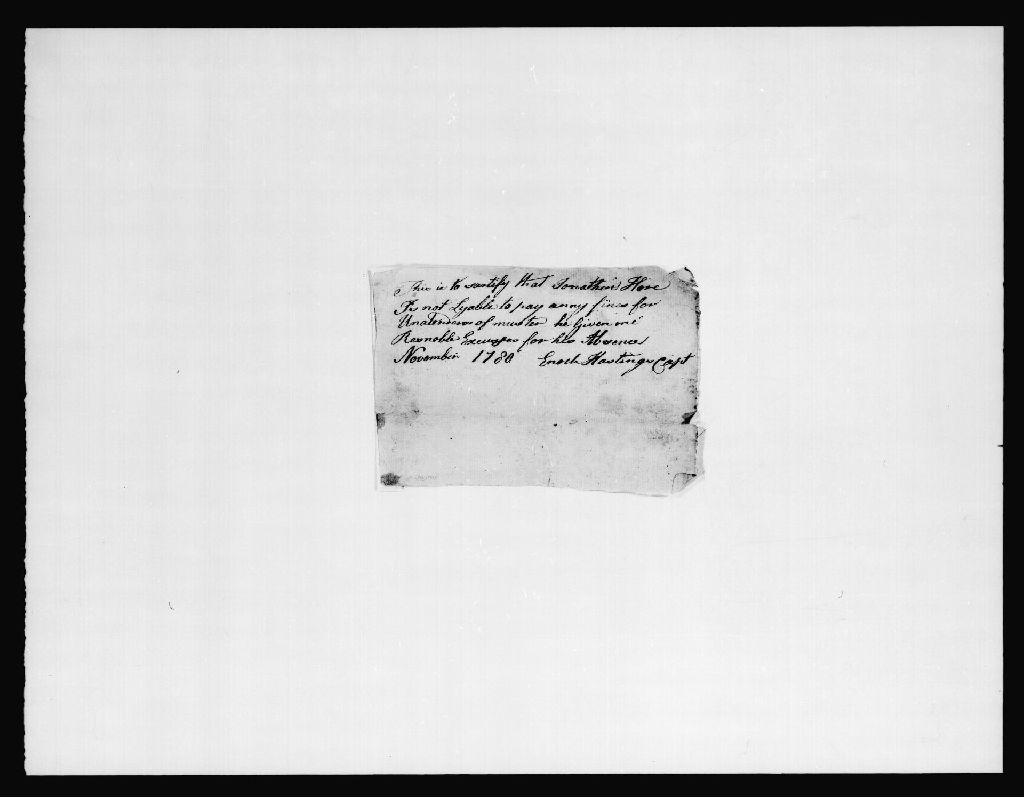 This is to sertify that Jonathan Hore
Is not Lyable to pay anny fines for
of muster he Given me
Resnoble Excuses for his Absence
November 1780 Enoch Hastings Capt